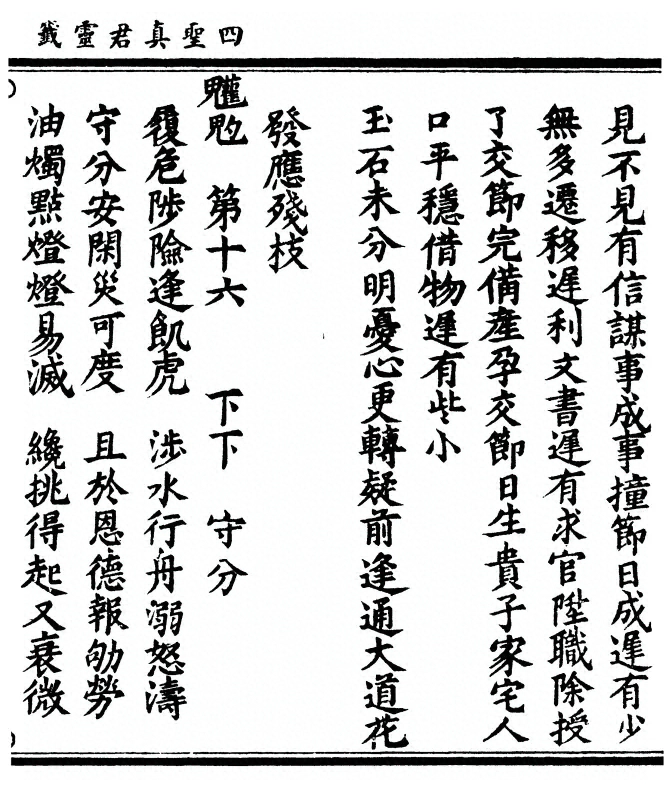 四聖真君靈籤
見不見有信謀事成事撞節日成遲有少
無多遷移遲利文書遲有求官陞職除授
了交節完備產孕交節日生貴子家宅人
口平穩借物遲有些小
玉石未分明憂心更轉疑前逢通大道花
發應殘枝
第十六 下下 守分
履危陟險逢飢虎 涉水行舟溺怒濤
守分安閑災可度 且於恩德報劬勞
油燭點燈燈易滅 纔挑得起又衰微